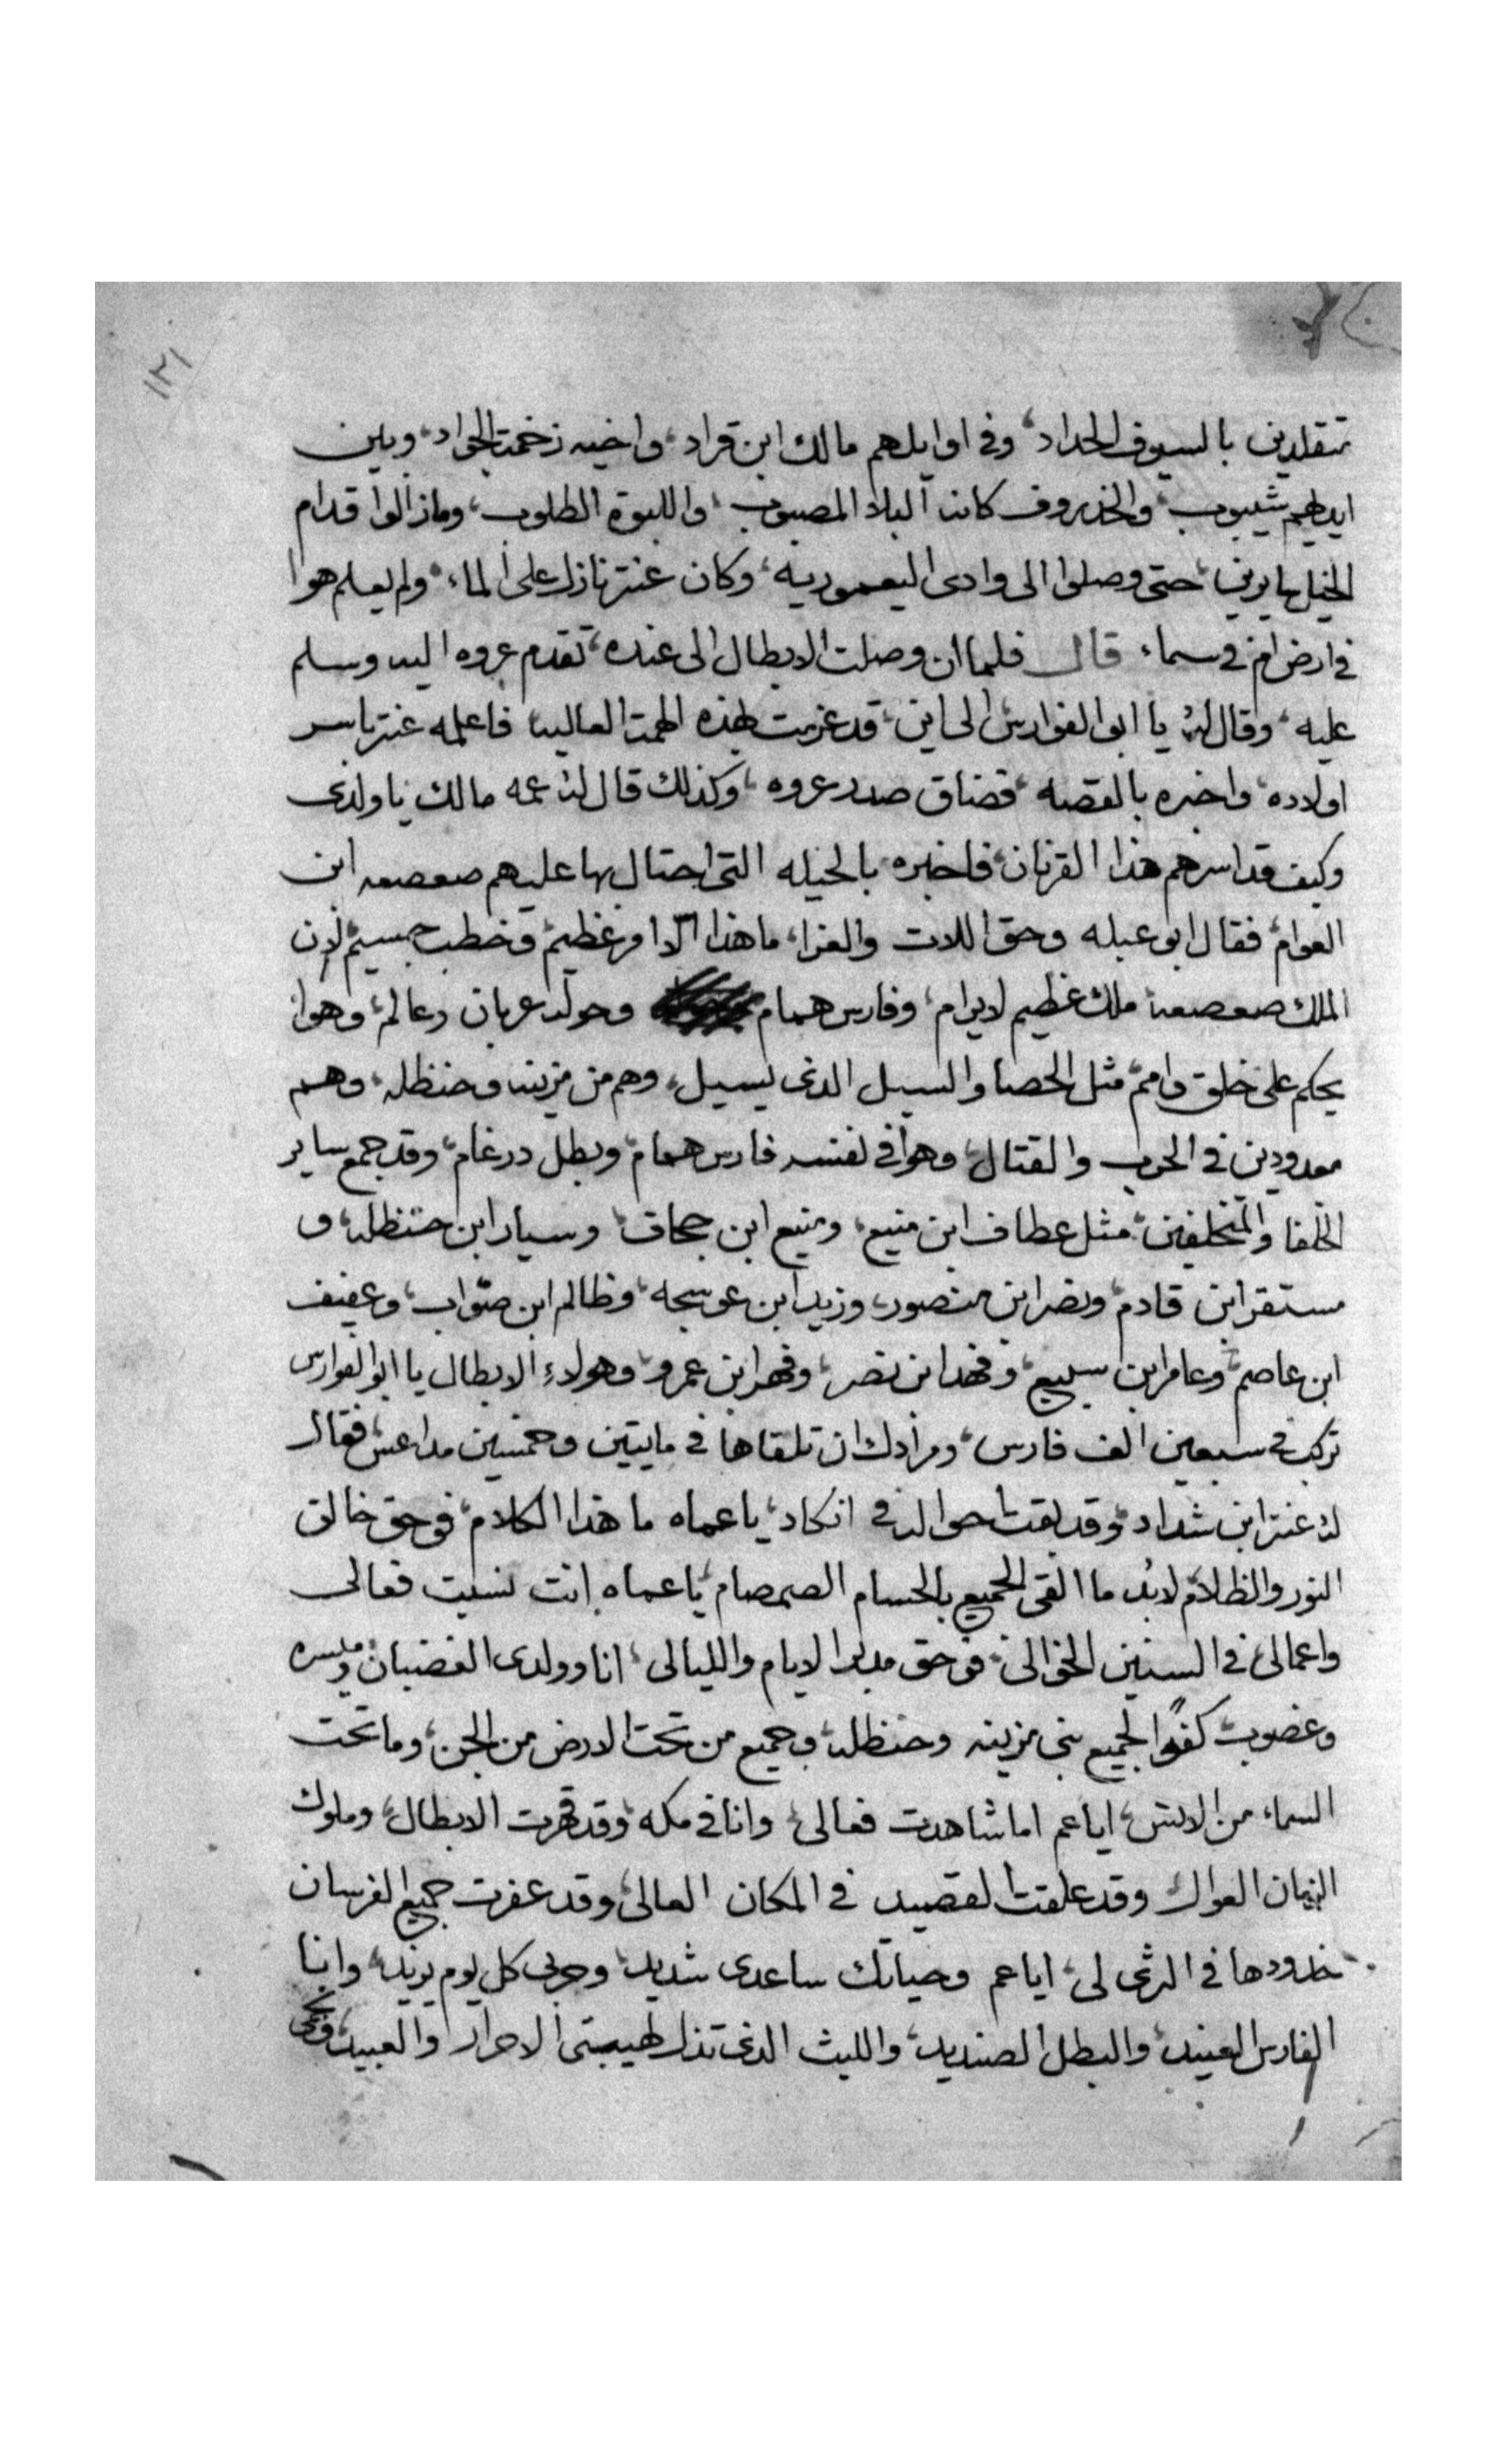 ١٢١
متقلدين بالسيوف الحداد، وفى اوايلهم مالك ابن قراد، واخيه زخمة الجواد، وبين
ايديهم شيبوب، والخذروف كانه البلا المصبوب، واللبوة الطلوب، وما زالوا قدام
الخيل سايرين، حتى وصلوا الى وادى اليعموريه، وكان عنتر نازل على الماء، ولم يعلم هوا
فى ارض ام فى سماء، قال فلما ان وصلت الابطال الى عنده، تقدم عروه اليه وسلم
عليه، وقال له يا ابو الفوارس الى اين، قد عزمت بهذه الهمة العاليه فاعلمه عنتر باسر
اولاده، واخبره بالقصه، فضاق صدر عروه، وكذلك قال له عمه مالك يا ولدى
وكيف قد اسرهم هذا القرنان، فاخبره بالحيله التى احتال بها عليهم صعصعه ابن
العوام، فقال ابو عبله وحق اللات والعزا، ما هذا الا امر عظيم، وخطب جسيم، لان
الملك صعصعه ملك عظيم لا يرام، وفارس همام وحوله عربان وعالم، وهوا
يحكم على خلق وامم، مثل الحصا والسيل الدى يسيل، وهم من مزينه وحنظله، وهم
معدودين فى الحرب والقتال، وهوا فى نفسه فارس همام، وبطل درغام، وقد جمع ساير
الخلفا والمتخلفين، مثل عطاف ابن منيع، ومنيع ابن جحاف، وسيار ابن حنظله، و
مستقر ابن قادم، ونصر ابن منصور، وزيد ابن عوسجه، وظالم ابن صواب، وعفيف
ابن عاصم، وعامر ابن سبيع، وفهد ابن نصر، وفهر ابن عمرو، وهولاء الابطال يا ابو الفوارس
تركب فى سبعين الف فارس، ومرادك ان تلقاها فى مايتين وخمسين مداعس، فقال
له عنتر ابن شداد، وقد بقت احواله فى انكاد، يا عماه ما هذا الكلام، فوحق خالق
النور والظلام، لابد ما القى الجميع بالحسام الصمصام، يا عماه انت نسيت فعالى
واعمالى، فى السنين الخوالى، فوحق مدبر الايام والليالى، انا وولدى الغضبان وميسره
وغصوب كفوا لجميع بنى مزينه وحنظله، وجميع من تحت الارض من الجن، وما تحت
السماء من الانس، ايا عم اما شاهدت فعالى، وانا فى مكه، وقد قهرت الابطال، وملوك
الزمان العوال وقد علقت القصيد فى المكان العالى، وقد عفرت جميع الفرسان
خدودها فى الثرى لى، ايا عم وحياتك ساعدى شديد، وحربى كل يوم يزيد، وانا
الفارس العنيد، والبطل الصنديد، والليث الدى تذل لهيبتى الاحرار والعبيد،